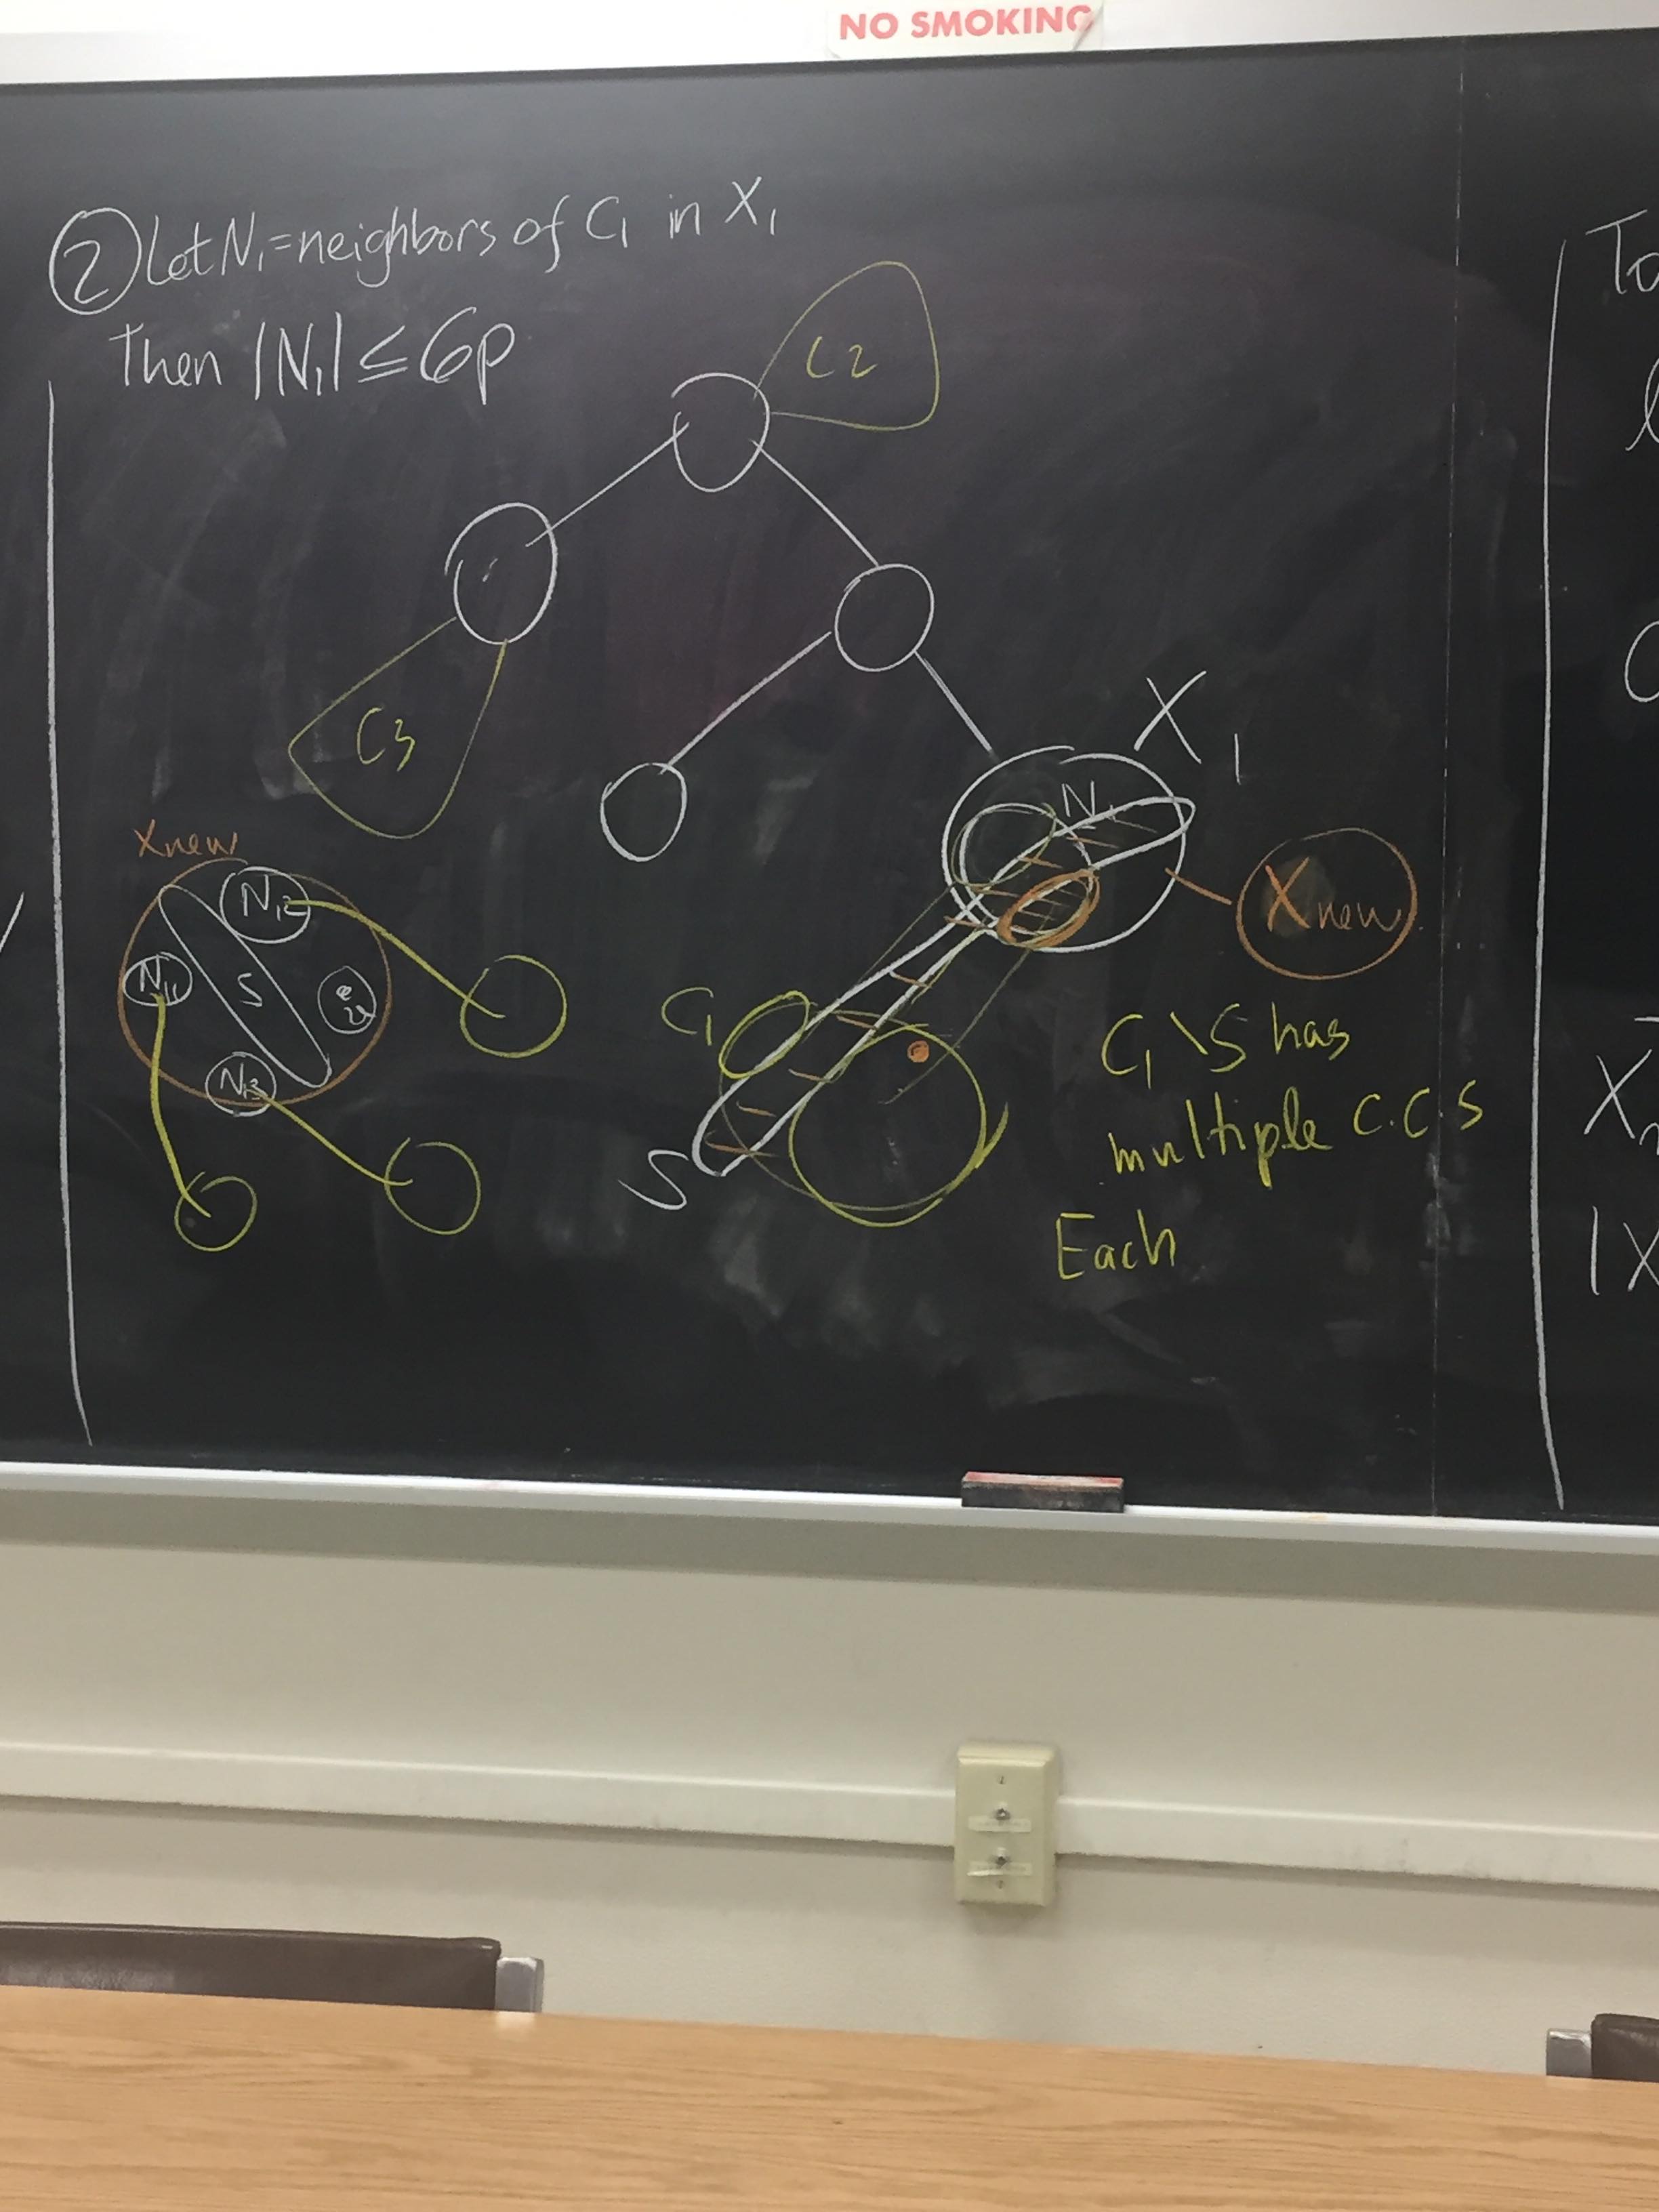 NO SMOKING
② Let N₁ = neighbors of C₁ in X₁
Then |N₁| ≤ 6p
C2
C3
X₁
N₁
Xnew
Xnew
N₁₂
N₁₁
S
N₁₃
C₁
S
C₁\S has
multiple C.C.S
Each
To
X
|X